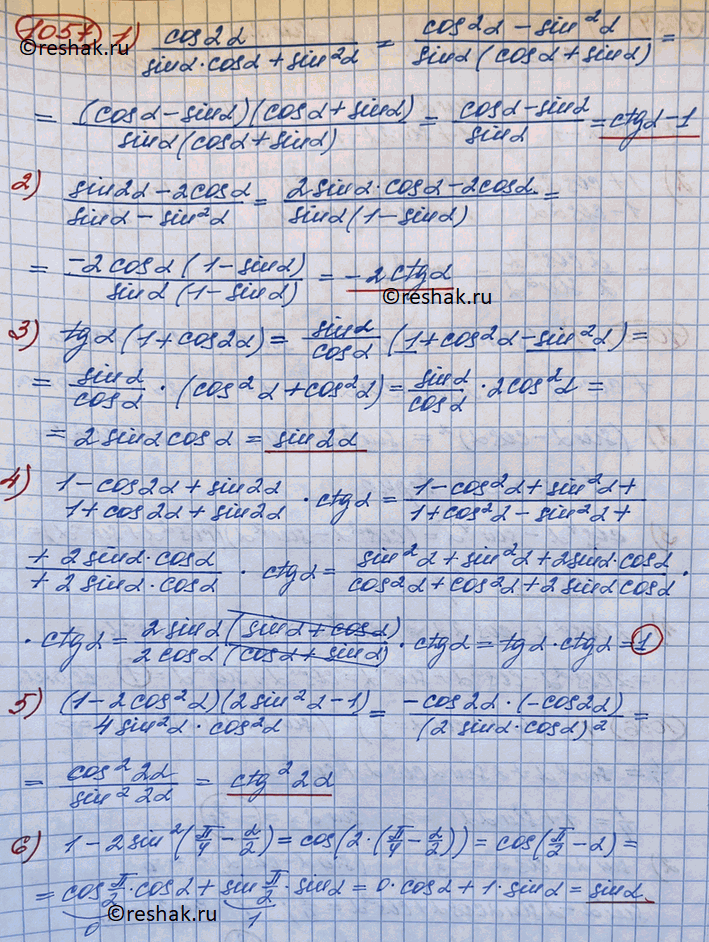 1057) 1) cos2α / (sinα·cosα + sin²α) = (cos²α − sin²α) / (sinα(cosα + sinα)) =
©reshak.ru
= (cosα − sinα)(cosα + sinα) / (sinα(cosα + sinα)) = (cosα − sinα) / sinα = ctgα − 1
2) (sin2α − 2cosα) / (sinα − sin²α) = (2sinα·cosα − 2cosα) / (sinα(1 − sinα)) =
= −2cosα(1 − sinα) / (sinα(1 − sinα)) = −2ctgα
©reshak.ru
3) tgα(1 + cos2α) = sinα / cosα (1 + cos²α − sin²α) =
= sinα / cosα · (cos²α + cos²α) = sinα / cosα · 2cos²α =
= 2sinαcosα = sin2α
4) (1 − cos2α + sin2α) / (1 + cos2α + sin2α) · ctgα = (1 − cos²α + sin²α + / 1 + cos²α − sin²α +
+ 2sinα·cosα / + 2sinα·cosα) · ctgα = (sin²α + sin²α + 2sinα·cosα) / (cos²α + cos²α + 2sinαcosα) ·
· ctgα = 2sinα(sinα + cosα) / (2cosα(cosα + sinα)) · ctgα = tgα·ctgα = 1
5) (1 − 2cos²α)(2sin²α − 1) / (4sin²α·cos²α) = −cos2α·(−cos2α) / (2sinα·cosα)² =
= cos²2α / sin²2α = ctg²2α
6) 1 − 2sin²(π/4 − α/2) = cos(2·(π/4 − α/2)) = cos(π/2 − α) =
= cos π/2 · cosα + sin π/2 · sinα = 0·cosα + 1·sinα = sinα.
0 ©reshak.ru 1